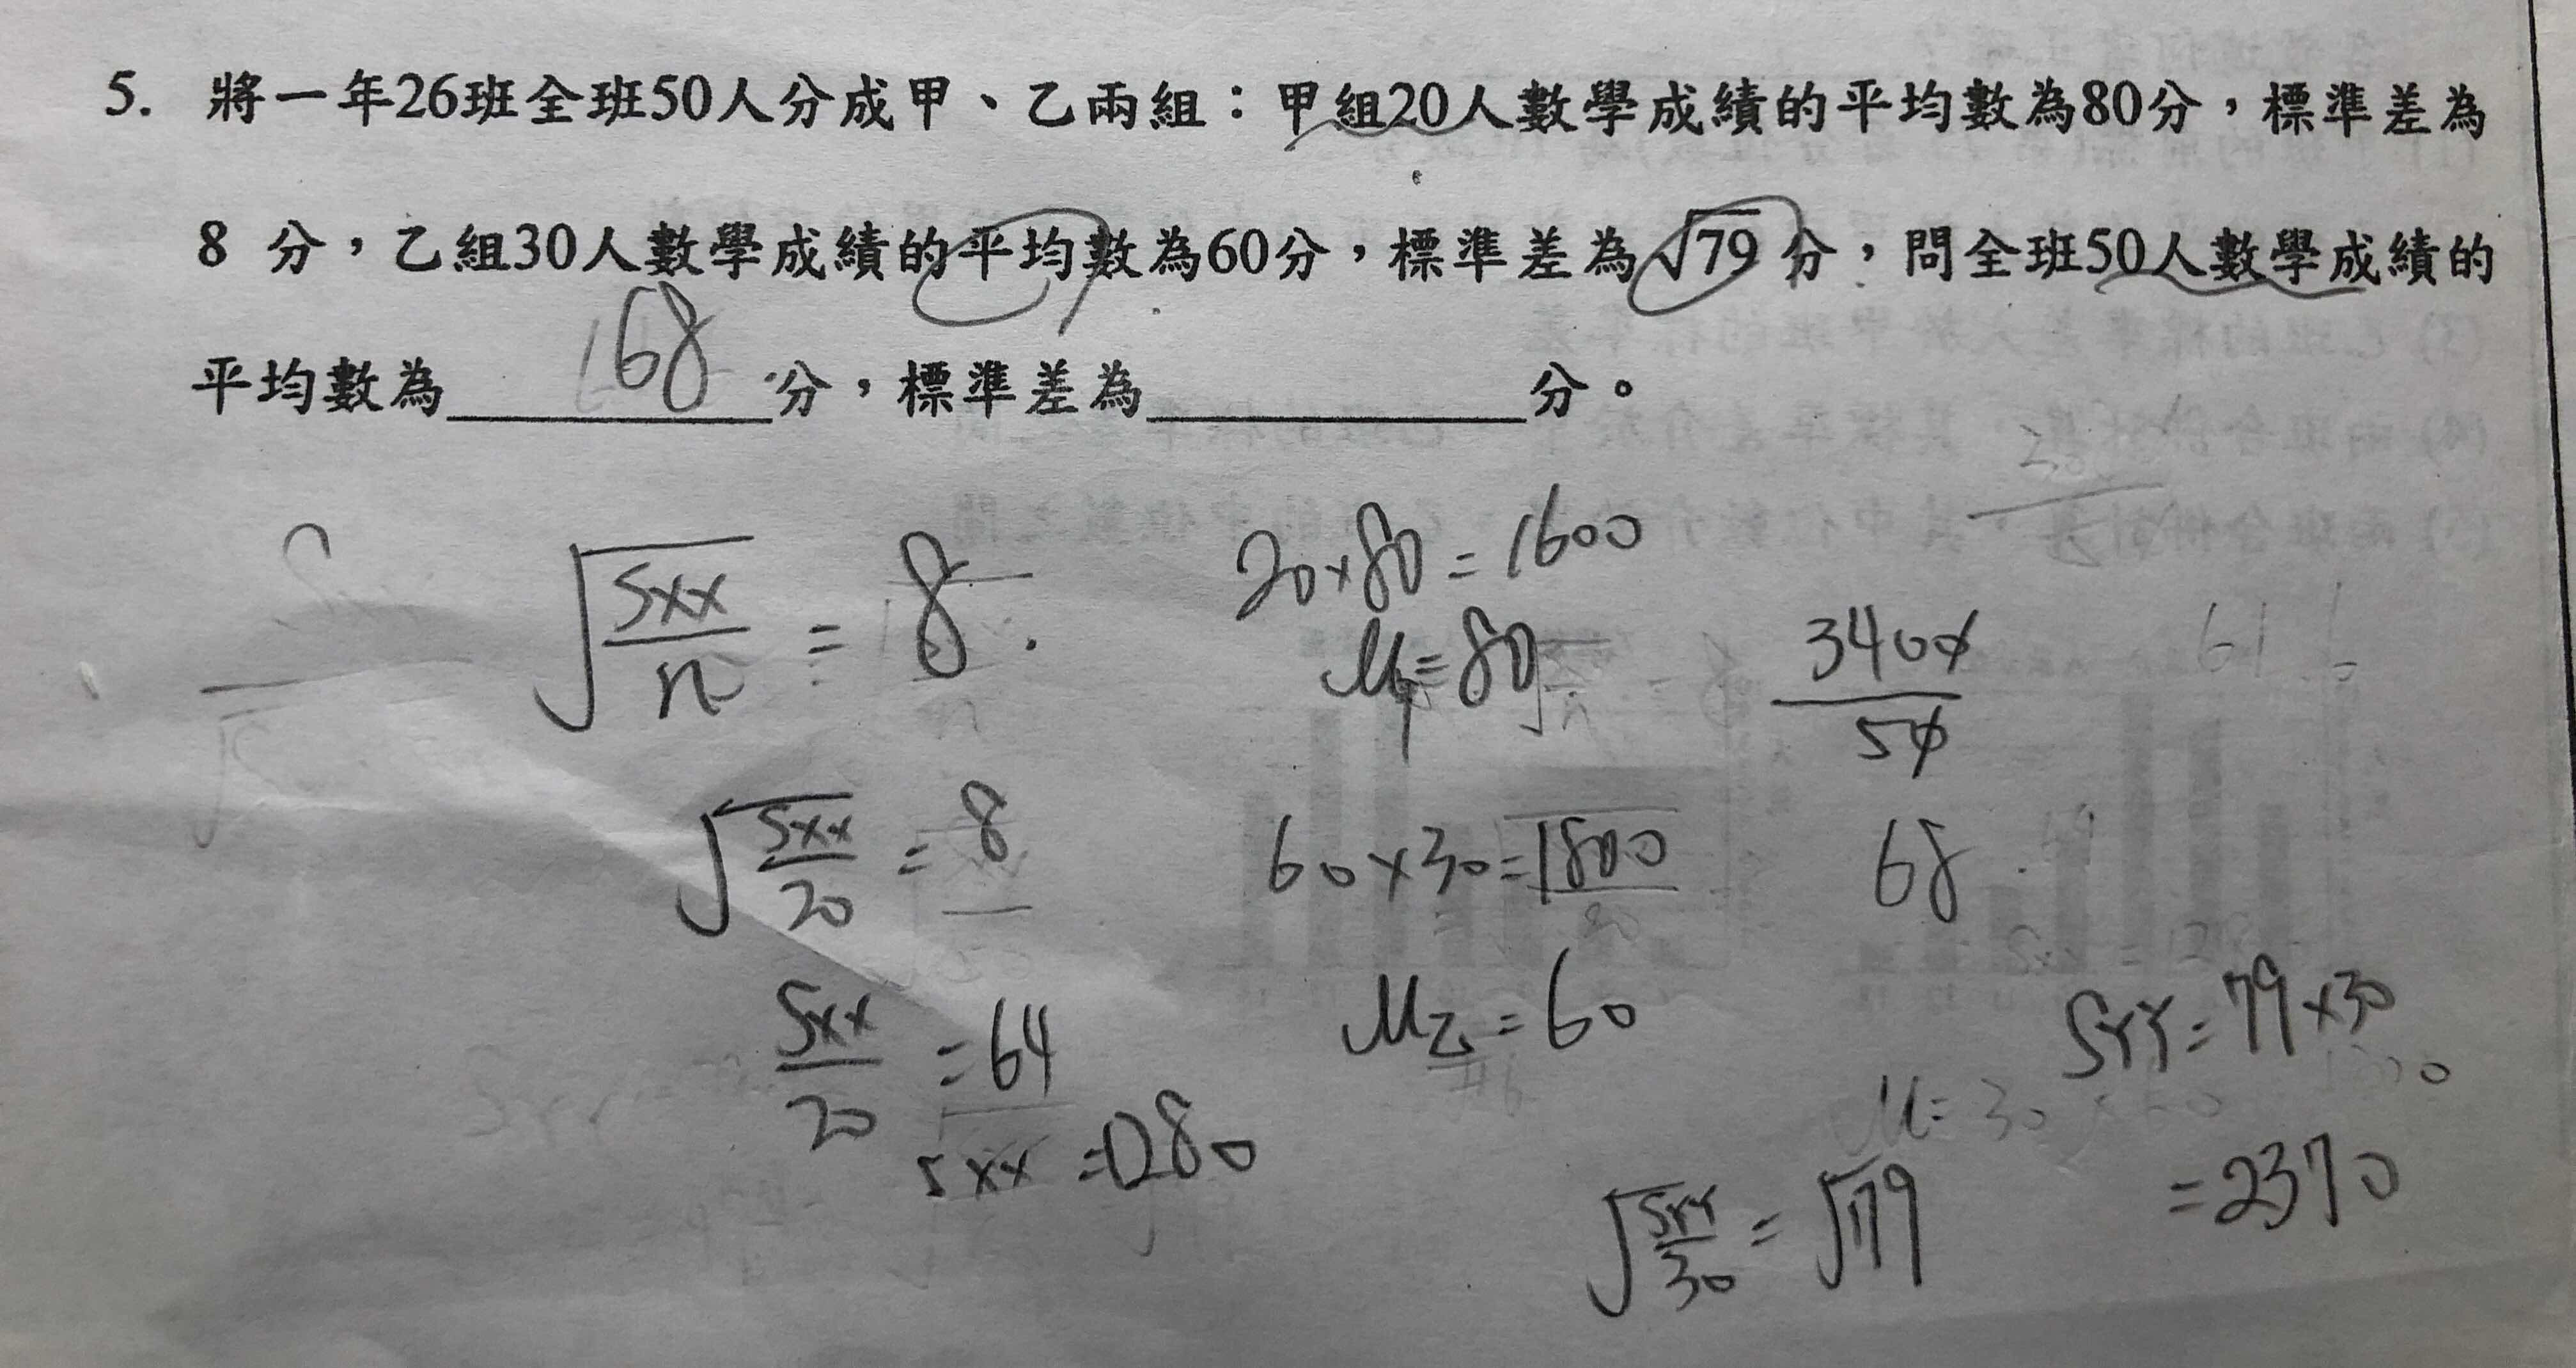 5. 將一年26班全班50人分成甲、乙兩組：甲組20人數學成績的平均數為80分，標準差為
8 分，乙組30人數學成績的平均數為60分，標準差為√79分，問全班50人數學成績的
平均數為 68 分，標準差為____________分。
√(Sxx/n) = 8
20×80=1600
μ甲=80
3400/50
√(Sxx/20) = 8
60×30=1800
68
Sxx/20 = 64
μ乙=60
Syy=79×30
Sxx=1280
√(Syy/30) = √79
=2370